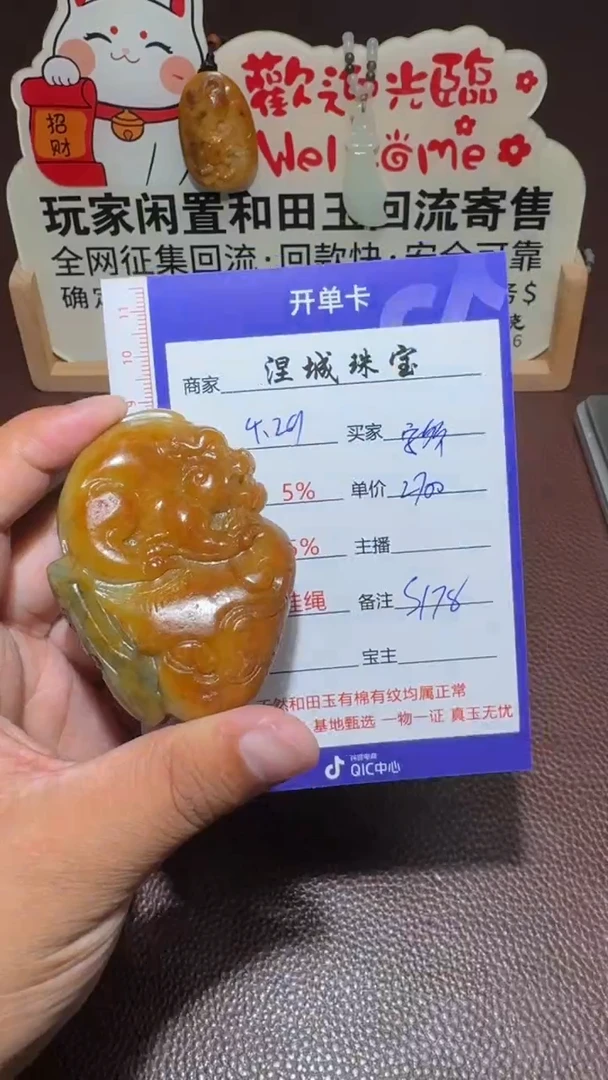 招财
歡迎光臨
Welcome
玩家闲置和田玉回流寄售
全网征集回流·回款快·安全可靠
确定
$
6
开单卡
11
10
9
商家 涅城珠宝
4.29 买家
5% 单价 2700
5% 主播
挂绳 备注 S178
宝主
天然和田玉有棉有纹均属正常
基地甄选 一物一证 真玉无忧
抖音电商
QIC中心